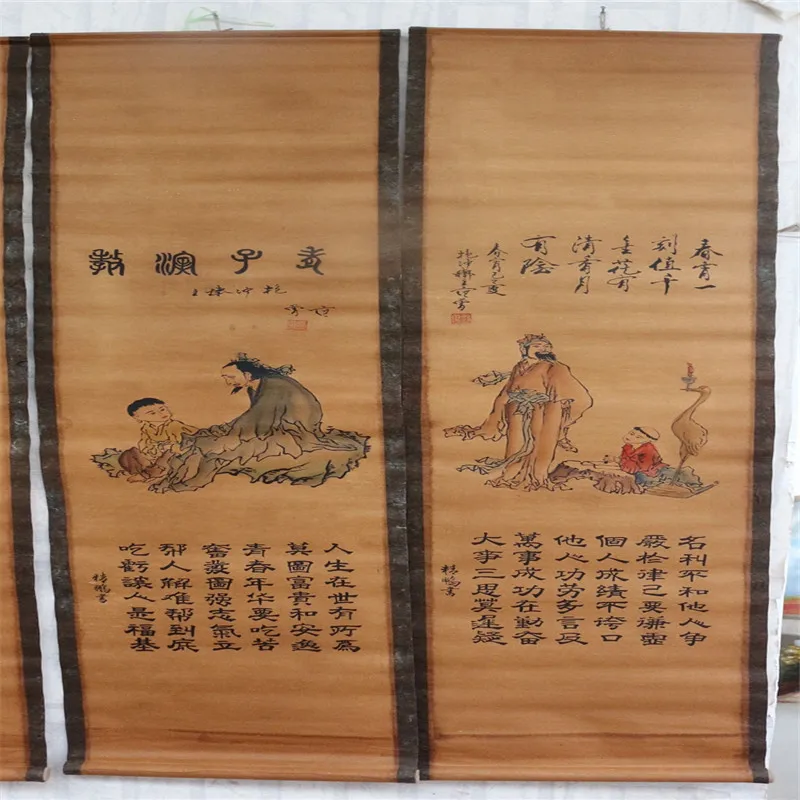 春宵一
刻值千
金花有
清香月
有陰
名利不和他人争
嚴於律己要謙虚
個人成績不誇口
他人功劳多言及
萬事成功在勤奮
大事三思莫遲疑
子演教
人生在世有所為
莫圖富貴和安逸
青春年华要吃苦
奮發圖强志氣立
人解难帮到底
吃虧讓人是福基